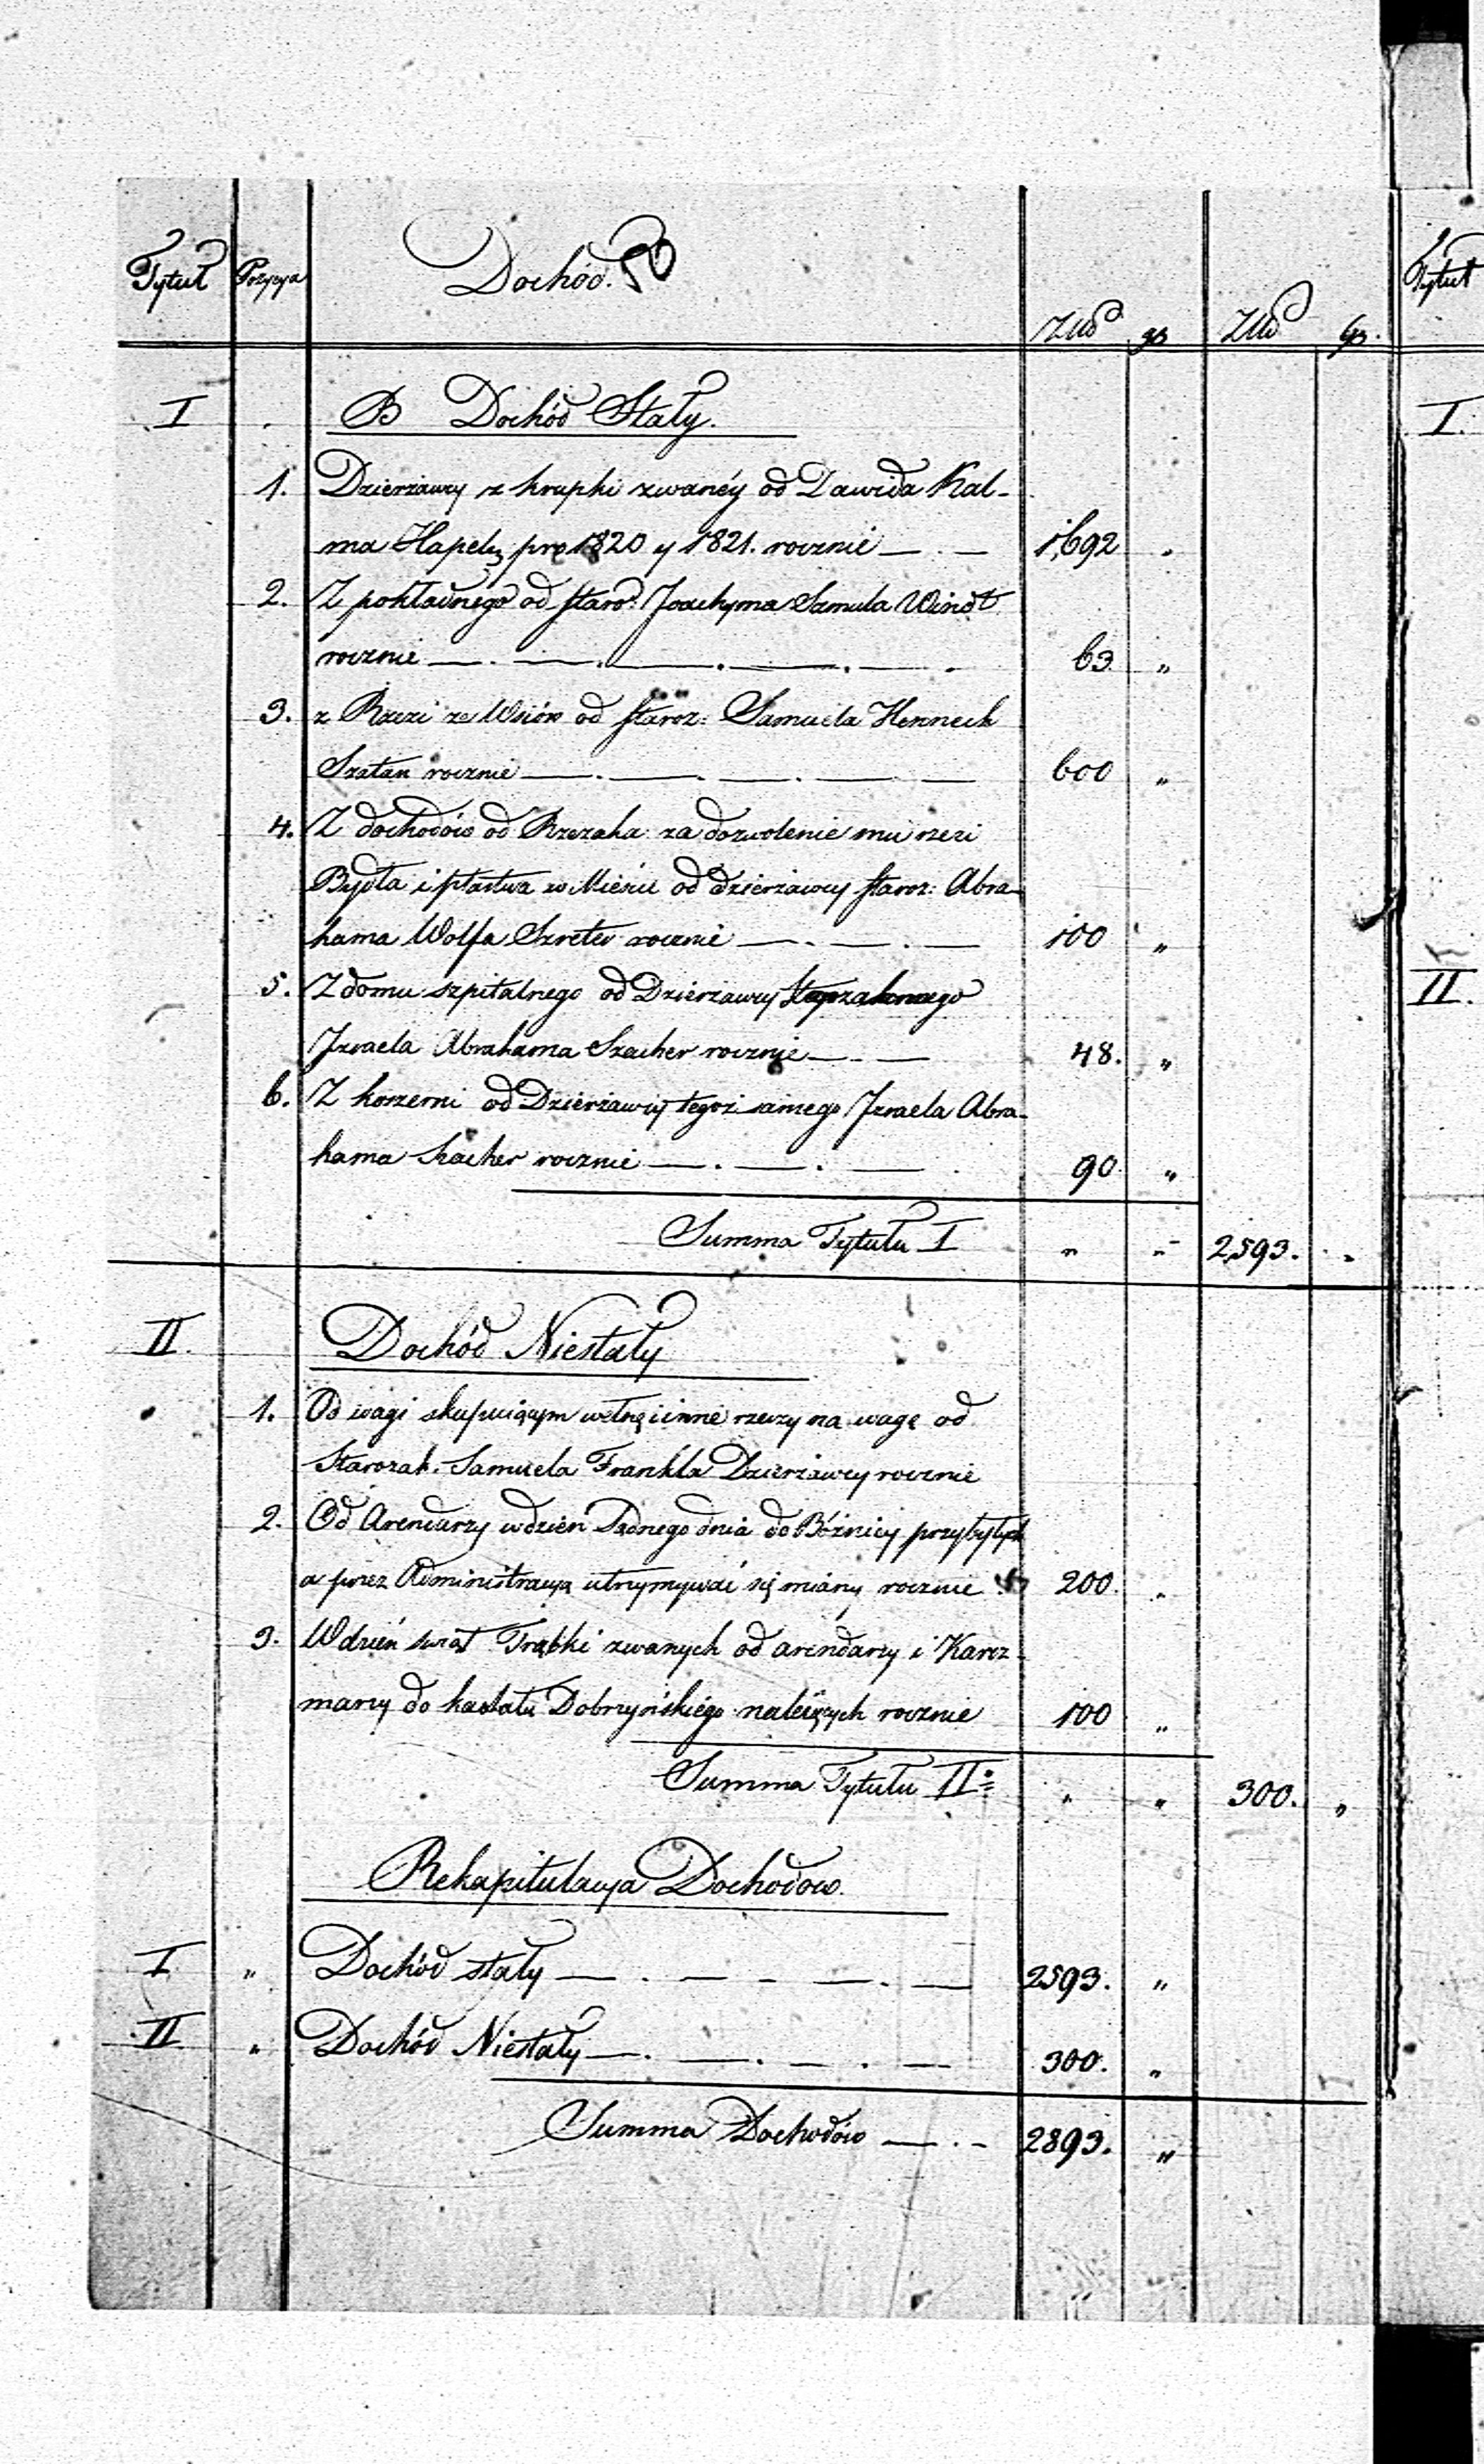 Tytuł Pozycya Dochód. Złło gr Złło gr. Tytuł
I B Dochód Stały. I.
1. Dzierżawy z krupki zwanéy od Dawida Kal-
ma Hapelą pro 1820 y 1821. rocznie 1,692 "
2. Z pokładnego od staro: Joachyma Samula Windt
rocznie 63 "
3. z Rzezi ze Wsiów od staroz: Samuela Hennech
Szatan rocznie 600 "
4. Z dochodów od Rzezaka za dozwolenie mu rzezi
Bydła i ptastwa w Mieście od dzierżawcy staroz: Abra-
hama Wolfa Szreter rocznie 100 "
II.
5. Z domu szpitalnego od Dzierżawcy
Izraela Abrahama Szacher rocznie 48. "
6. Z koszerni od Dzierżawcy tegoż samego Izraela Abra-
hama Szacher rocznie 90 "
Summa Tytułu I " " 2,593. "
II. Dochód Niestały
1. Od wagi skupuiącym wełnę i inne rzeczy na wagę od
Starozak. Samuela Frankla Dzierżawcy rocznie
2. Od Arendarzy w dzień Sądnego dnia do Bóźnicy przybyłych
a przez Administracyą utrzymywać się miány rocznie 200. "
3. W dzień świąt Trąbki zwanych od arendarzy i Karcz-
marzy do kachału Dobrzyńskiégo należących rocznie 100 "
Summa Tytułu II " " 300. "
Rekapitulacya Dochodow.
I " Dochód stały 2593. "
II " Dochód Niestały 300. "
Summa Dochodów 2893. "